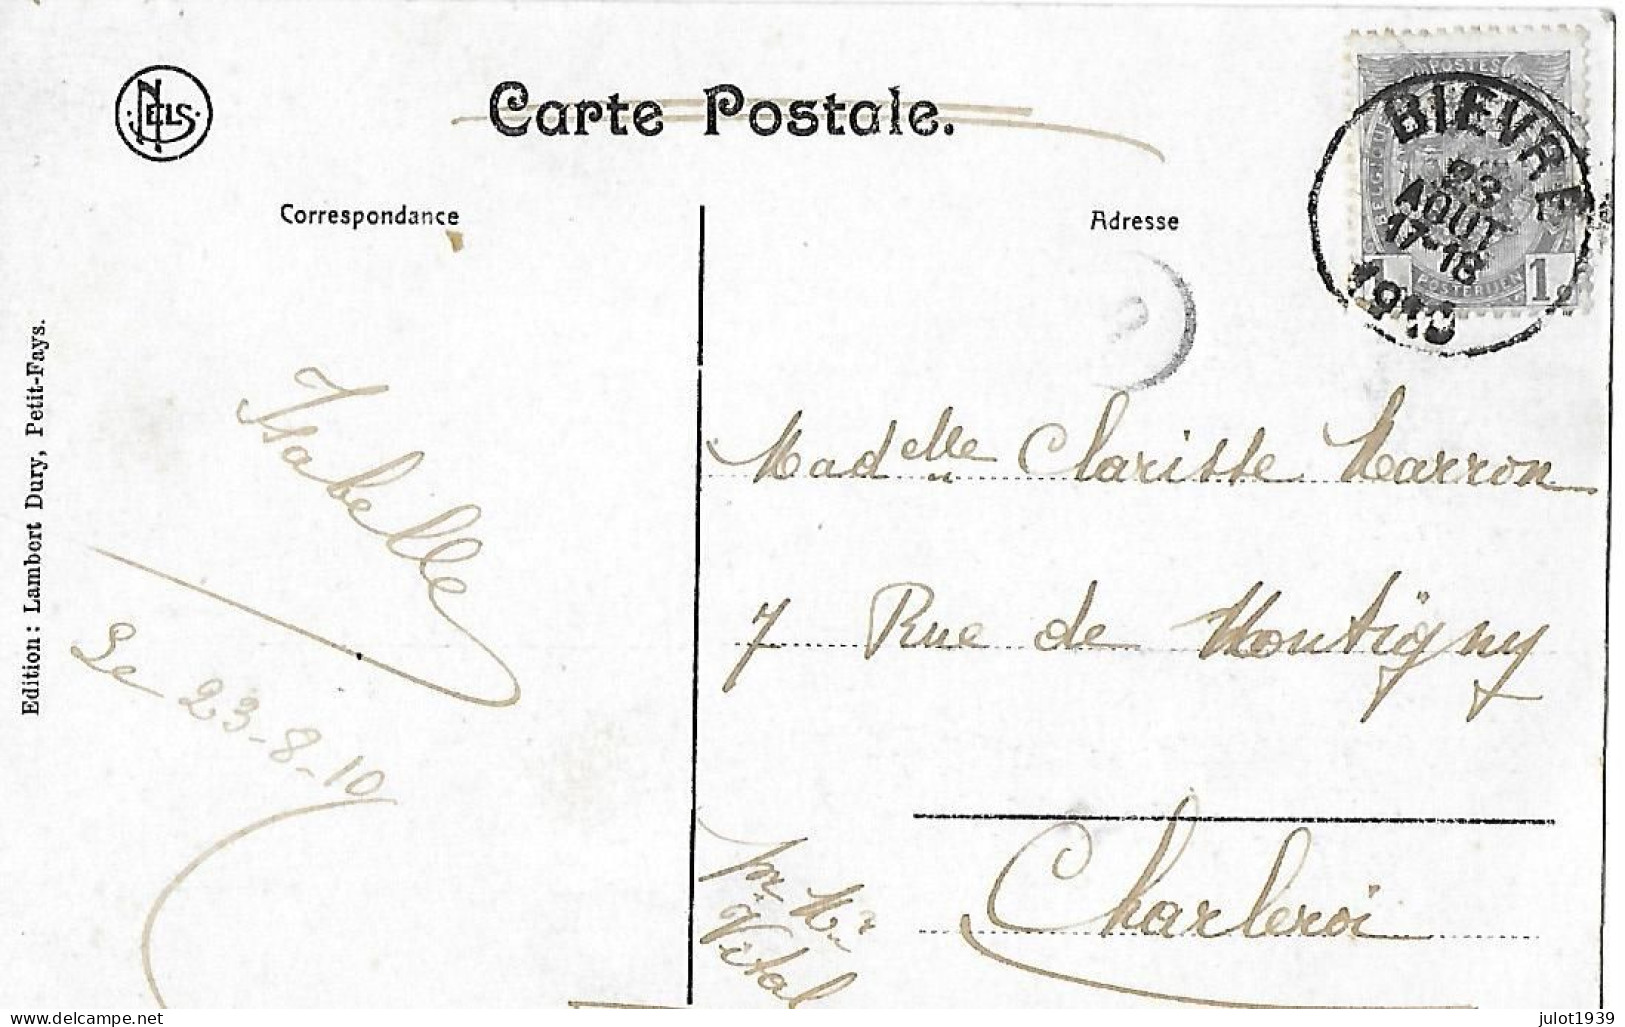 NELS
Carte Postale.
POSTES
BELGIQUE
POSTERIJEN
1
BIEVRE
23
AOUT
17-18
1910
Correspondance
Adresse
Edition : Lambert Dury, Petit-Fays.
Isabelle
Le 23-8-10
Madelle Clarisse Marron
7 Rue de Montigny
Charleroi
pr Mr
Vital
www.delcampe.net
julot1939